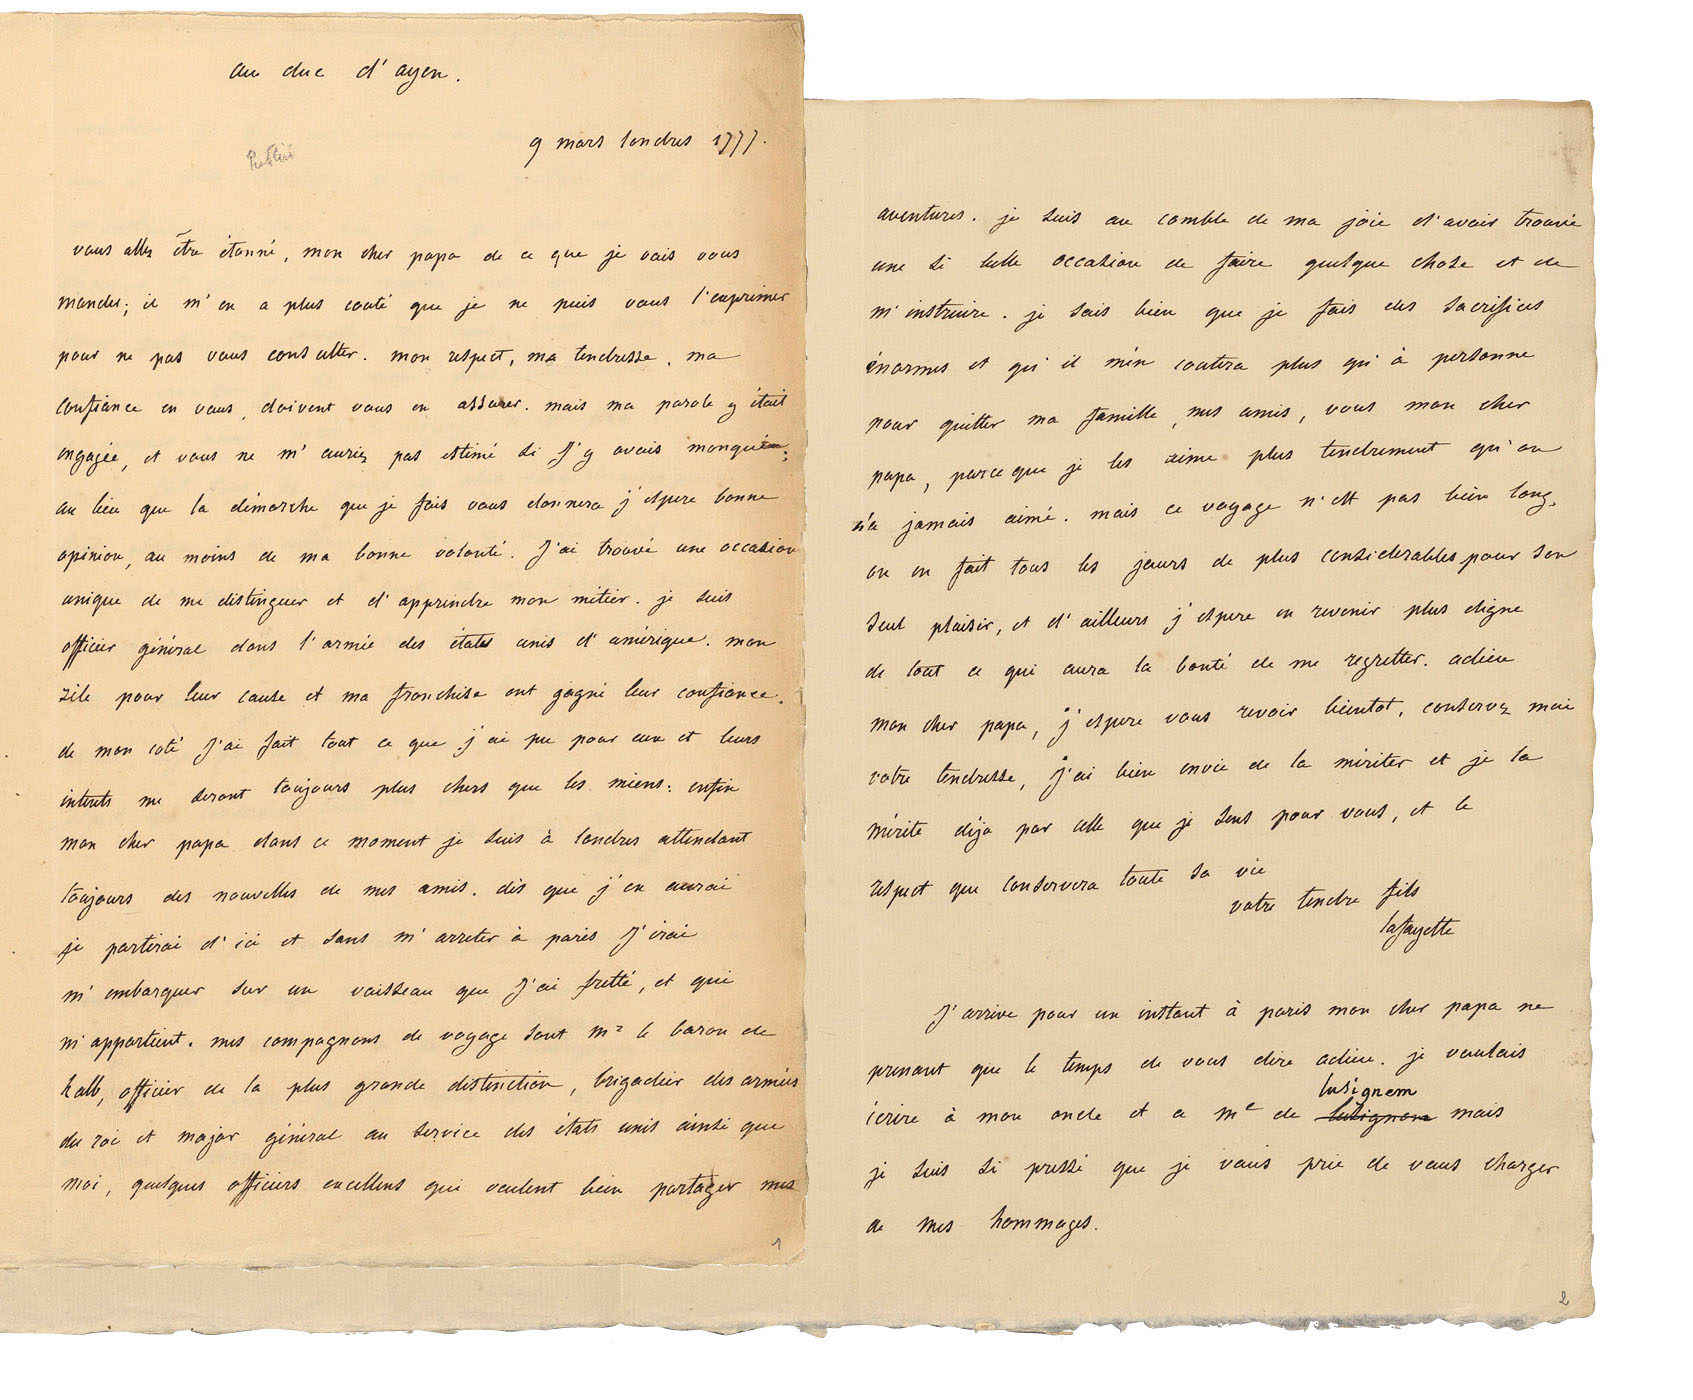 au duc d'ayen.
9 mars londres 1777.
Publié
vous allez être étonné, mon cher papa de ce que je vais vous
mander; il m'en a plus couté que je ne puis vous l'exprimer
pour ne pas vous consulter. mon respect, ma tendresse, ma
confiance en vous, doivent vous en assurer. mais ma parole y était
engagée, et vous ne m'auriez pas estimé si j'y avais manqué;
au lieu que la démarche que je fais vous donnera j'espere bonne
opinion, au moins de ma bonne volonté. j'ai trouvé une occasion
unique de me distinguer et d'apprendre mon métier. je suis
officier général dans l'armée des états unis d'amérique. mon
zèle pour leur cause et ma franchise ont gagné leur confiance.
de mon coté j'ai fait tout ce que j'ai pu pour eux et leurs
interets me seront toujours plus chers que les miens. enfin
mon cher papa dans ce moment je suis à londres attendant
toujours des nouvelles de mes amis. dès que j'en aurai
je partirai d'ici et sans m'arreter à paris j'irai
m'embarquer sur un vaisseau que j'ai fretté, et qui
m'appartient. mes compagnons de voyage sont mr le baron de
kalb, officier de la plus grande distinction, brigadier des armées
du roi et major général au service des états unis ainsi que
moi, quelques officiers excellens qui veulent bien partager mes
1
aventures. je suis au comble de ma joie d'avoir trouvé
une si belle occasion de faire quelque chose et de
m'instruire. je sais bien que je fais des sacrifices
énormes et qu'il m'en coutera plus qu'à personne
pour quitter ma famille, mes amis, vous mon cher
papa, parce que je les aime plus tendrement qu'on
n'a jamais aimé. mais ce voyage n'est pas bien long,
on en fait tous les jours de plus considerables pour son
seul plaisir, et d'ailleurs j'espere en revenir plus digne
de tout ce qui aura la bonté de me regretter. adieu
mon cher papa, j'espere vous revoir bientot, conservez moi
votre tendresse, j'ai bien envie de la mériter et je la
mérite déja par celle que je sens pour vous, et le
respect que conservera toute sa vie
votre tendre fils
lafayette
J'arrive pour un instant à paris mon cher papa ne
prenant que le temps de vous dire adieu. je voulais
lusignem
écrire à mon oncle et a me de lusignan mais
je suis si pressé que je vous prie de vous charger
de mes hommages.
2